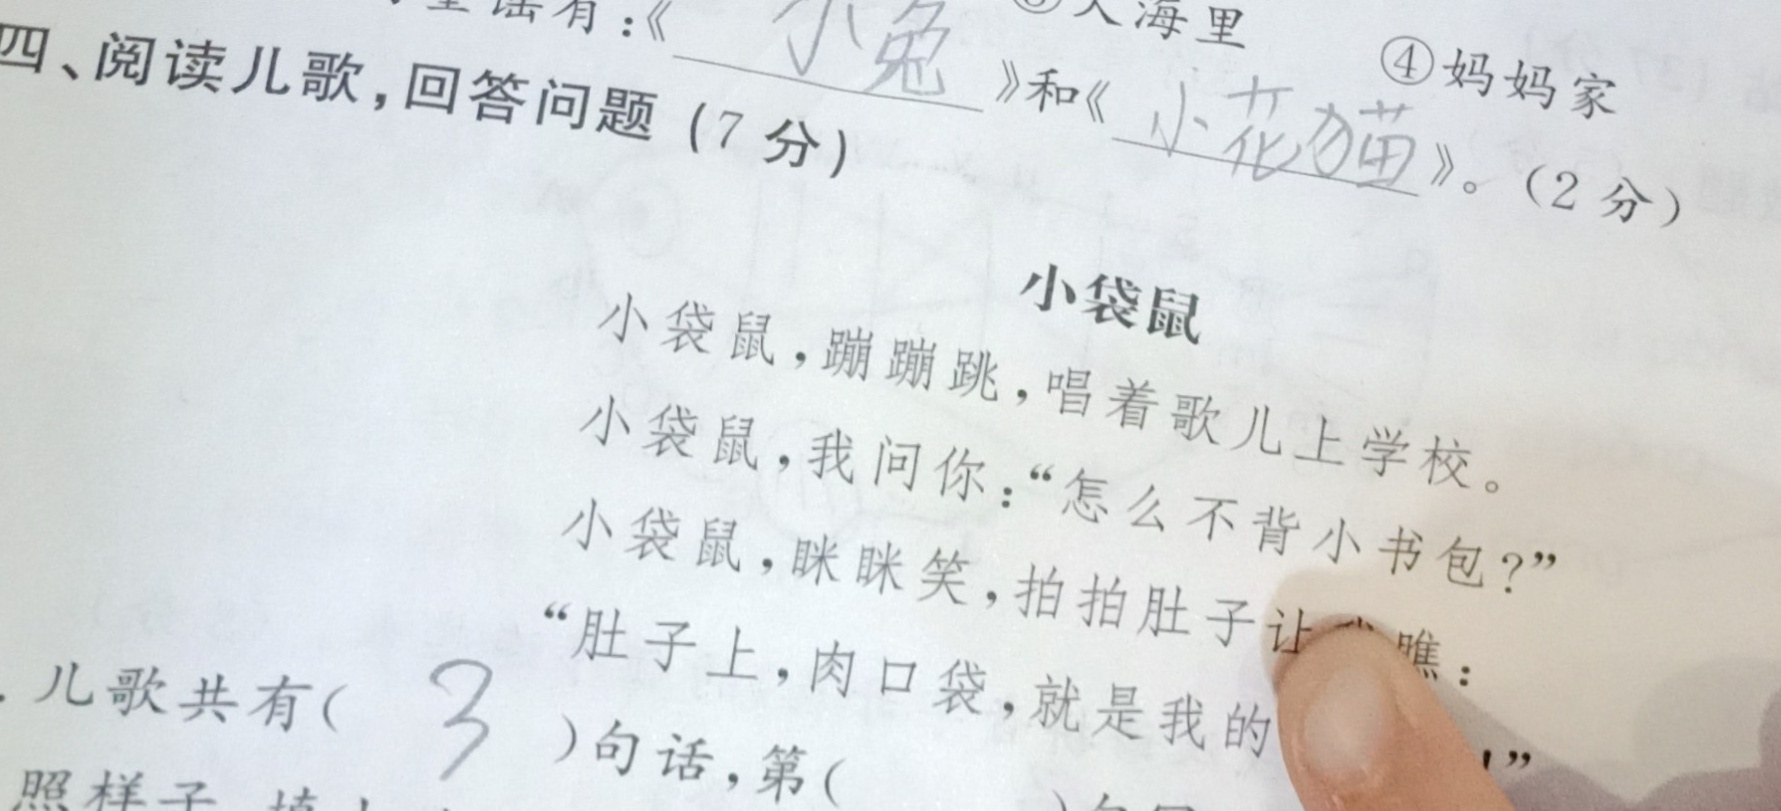 谣有：《小兔》和《小花猫》。（2 分）
③大海里
④妈妈家
四、阅读儿歌，回答问题（7 分）
小袋鼠
小袋鼠，蹦蹦跳，唱着歌儿上学校。
小袋鼠，我问你：“怎么不背小书包？”
小袋鼠，眯眯笑，拍拍肚子让 瞧：
“肚子上，肉口袋，就是我的 ！”
. 儿歌共有（ 3 ）句话，第（
照样子